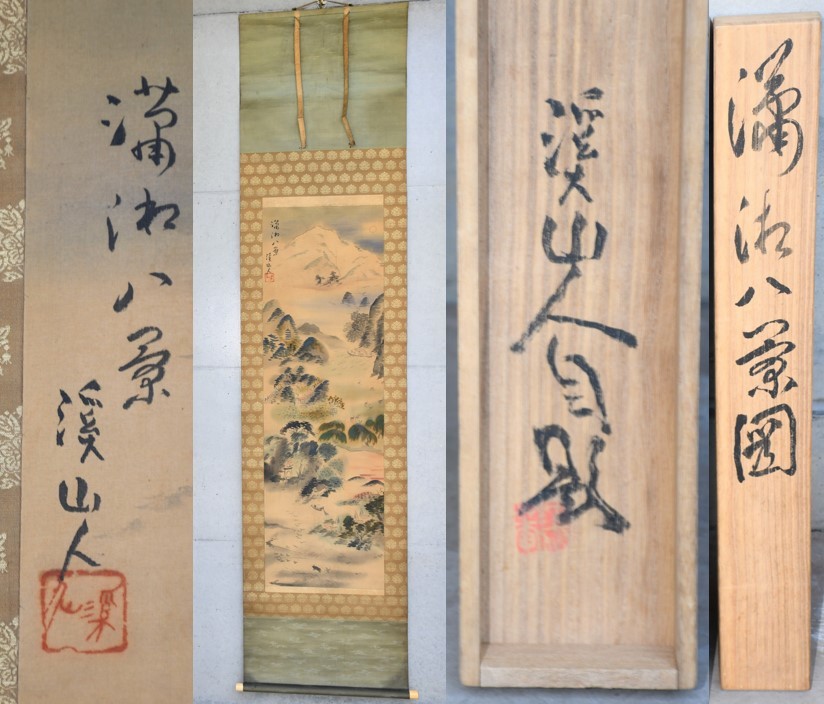 瀟湘八景
溪山人
瀟湘八景
溪山人
溪山人自題
瀟湘八景圖